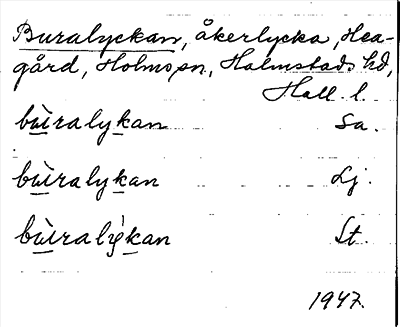 Buralyckan, åkerlycka, Hea-
gård, Holms sn, Halmstads hd,
Hall. l.
bùralykan Sa.
bùralykan Lj.
bùralỳkan St.
1947.